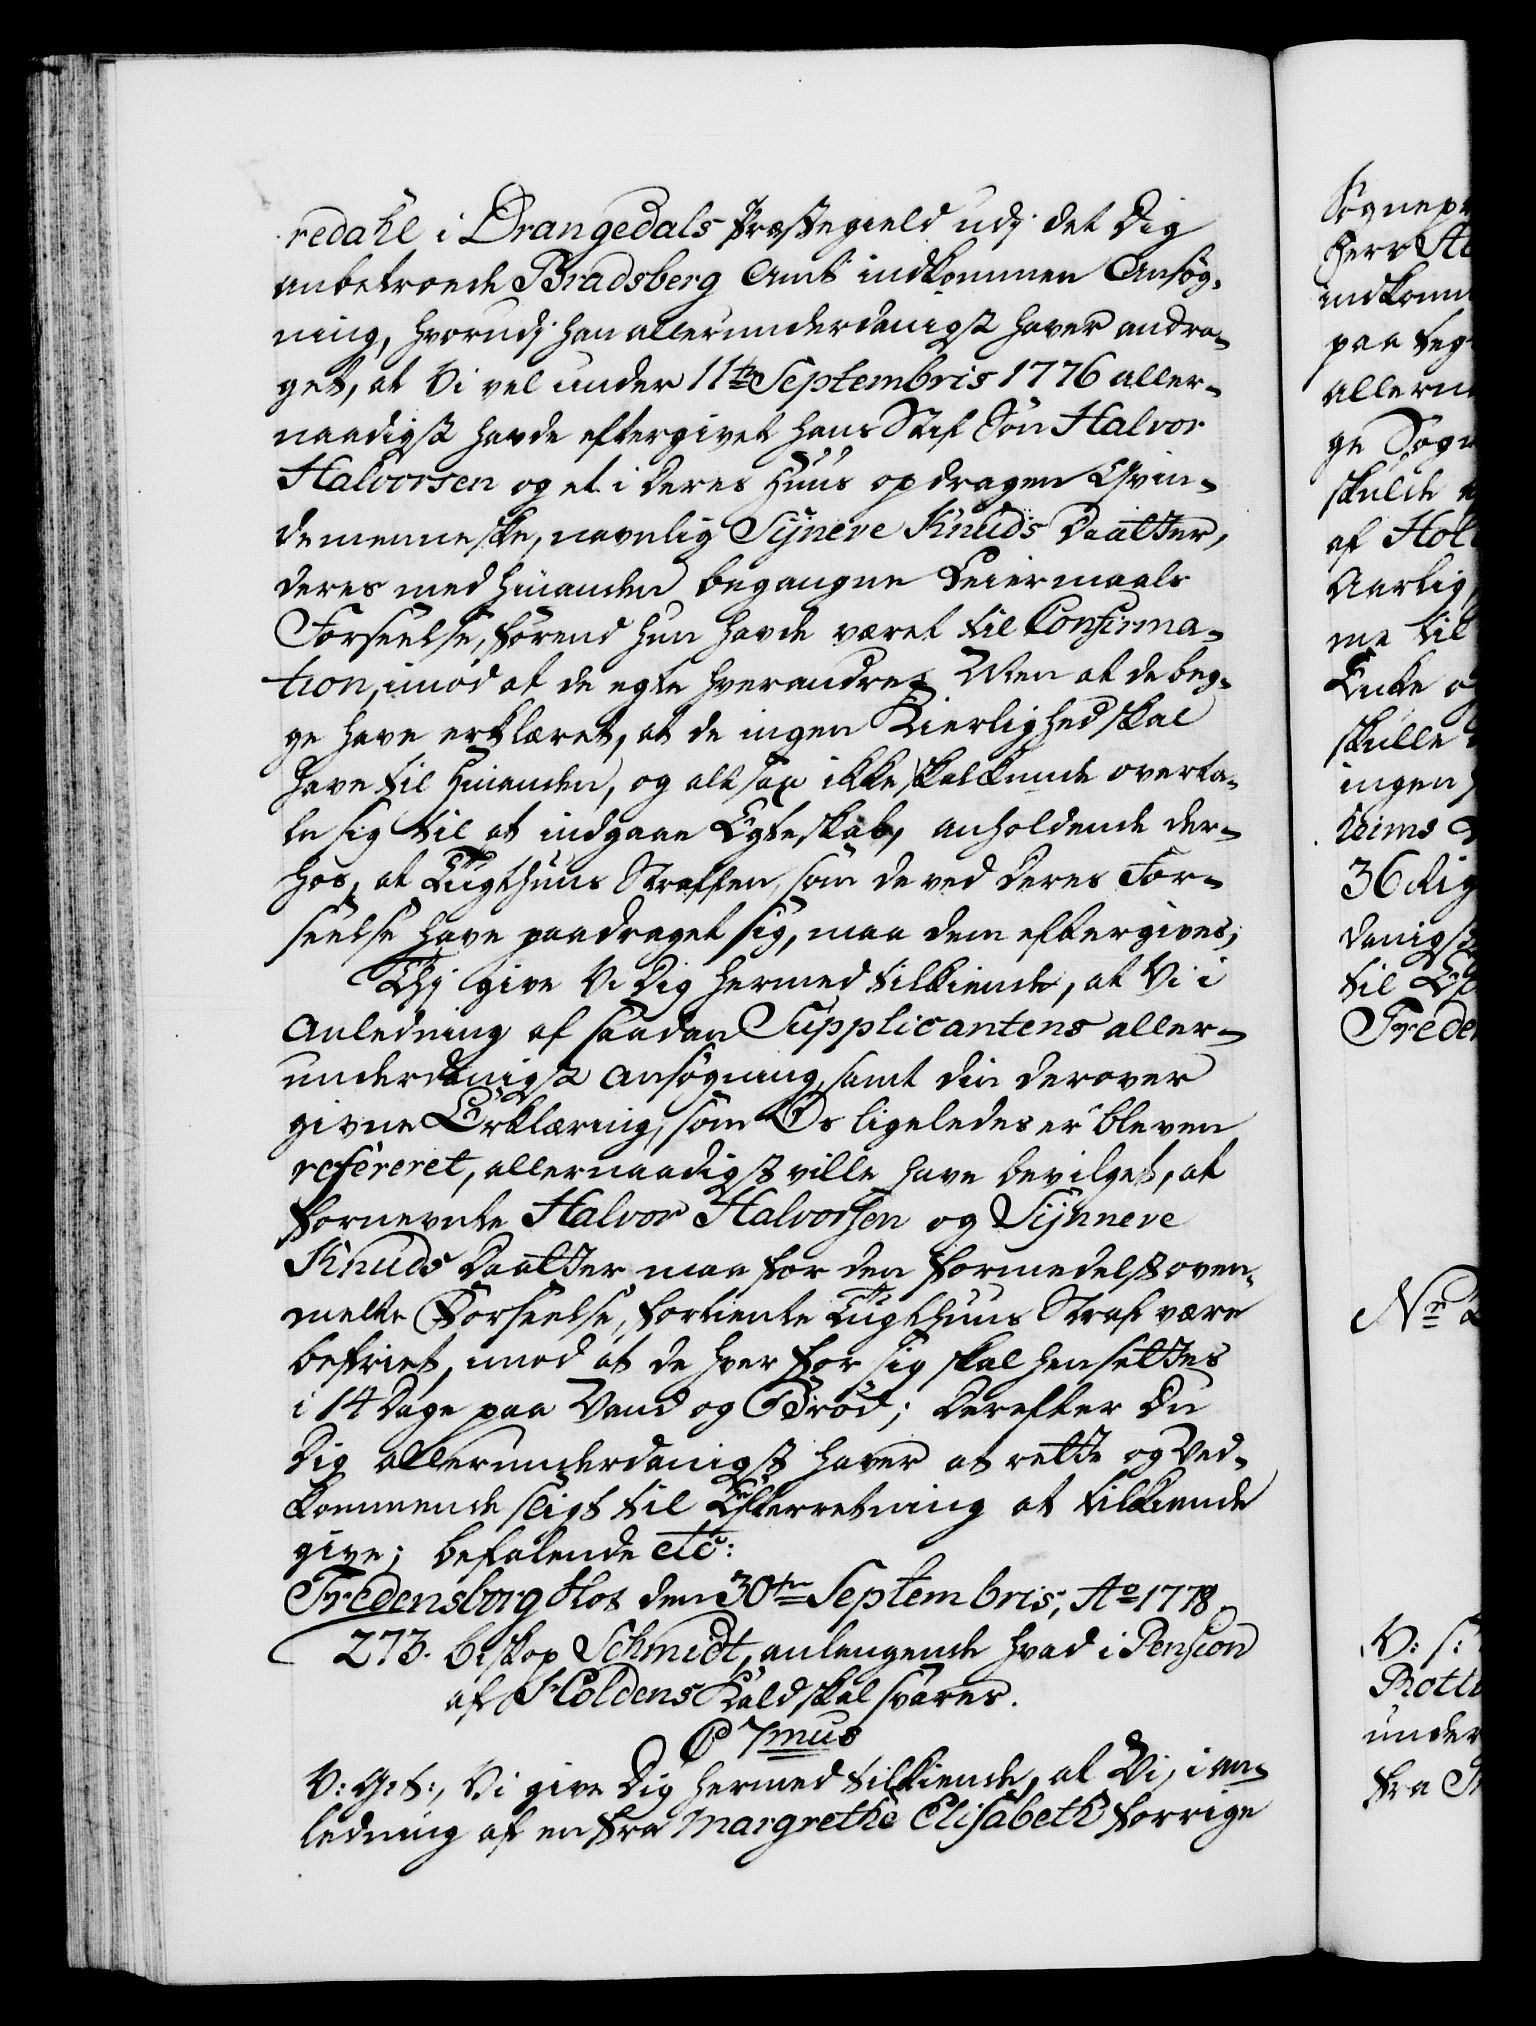 redahl i Drangedals Præstegield udj det Dig
anbetroede Bradsberg Amt indkommen Ansøg-
ning, hvorudj han allerunderdanigst haver andra-
get, at Vi vel under 11te Septembris 1776 aller-
naadigst havde eftergivet hans Stif Søn Halvor
Halvorsen og et i deres Huus opdragen Qvin-
demenneske, navnlig Sÿneve Knuds Daatter,
deres med hinanden begangne Leiermaals
Forseelse, førend hun havde været til Confirma-
tion, imod at de egte hverandre; Men at de beg-
ge have erklæret, at de ingen Kierlighed skal
have til hinanden, og altsaa ikke skal kunde overta-
le sig til at indgaae Egteskab, anholdende der-
hos, at Tugthuus Straffen, som de ved deres For-
seelse have paadraget sig, maa dem eftergives;
Thj give Vi Dig hermed tilkiende, at Vi i
Anledning af saadan Supplicantens aller-
underdanigst Ansøgning, samt din derover
givne Erklæring, som Os ligeledes er bleven
refereret, allernaadigst ville have bevilget, at
fornevnte Halvor Halvorsen og Sÿnneve
Knuds Daatter maa for den formedelst oven-
melte Forseelse, fortiente Tugthuus Straf være
befriet, imod at de hver for sig skal hensettes
i 14 Dage paa Vand og Brød; Derefter Du
Dig allerunderdanigst haver at rette og Ved-
kommende sligt til Efterretning at tilkiende
give; befalende etc:
Fredensborg Slot den 30te Septembris, Ao 1778.
273. Biskop Schmidt, anlangende hvad i Pension
af Holdens Kald skal svares.
C 7mus
V: G: T:, Vi give Dig hermed tilkiende, at Vi, i an-
ledning af en fra Margrethe Elisabeth forrige